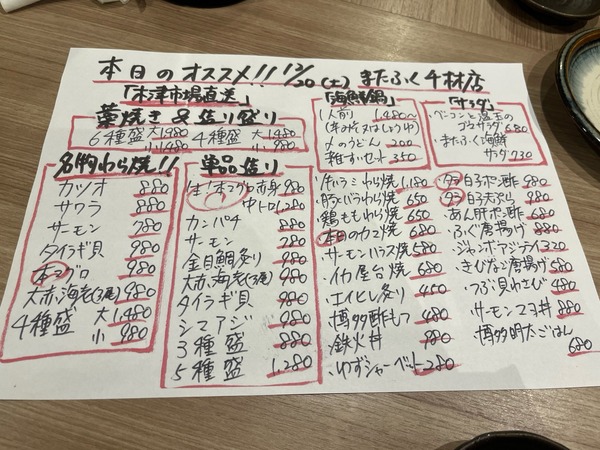 本日のオススメ!! 12/20(土) またふく 千林店
「木津市場直送」
藁焼き&造り盛り
6種盛 大1,980 4種盛 大1,480
小1,480 小 980
「海鮮鍋」
1人前 1,480〜
〆のうどん 200
雑すいセット 350
「サラダ」
・ベーコンと温玉の
ゴマサラダ 680
・またふく海鮮
サラダ 730
名物わら焼!!
カツオ 880
サワラ 880
サーモン 780
タイラギ貝 980
本マグロ 980
大赤海老(2尾) 980
4種盛 大1,480
小 980
単品造り
生!本マグロ赤身 980
中トロ 1,280
カンパチ 880
サーモン 780
金目鯛炙り 980
大赤海老(2尾) 980
タイラギ貝 980
シマアジ 980
3種盛 880
5種盛 1,280
・牛ハラミわら焼 1,180
・豚バラわら焼 650
・鶏ももわら焼 650
・本日のカマ焼 680
・サーモンハラス焼 580
・イカ屋台焼 680
・エイヒレ炙り 450
・博多酢もつ 480
・鉄火丼 980
・ゆずシャーベット 280
・タラ白子ポン酢 980
・タラ白子天ぷら 980
・あん肝ポン酢 680
・ふぐ唐揚げ 880
・ジャンボアジフライ 320
・きびなご唐揚げ 580
・つぶ貝わさび 480
・サーモンマヨ丼 880
・博多明太ごはん
680